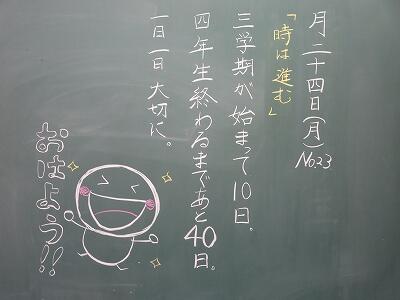 月二十四日(月) No.23
「時は進む」
三学期が始まって10日。
四年生終わるまであと40日。
一日一日大切に。
おはよう!!